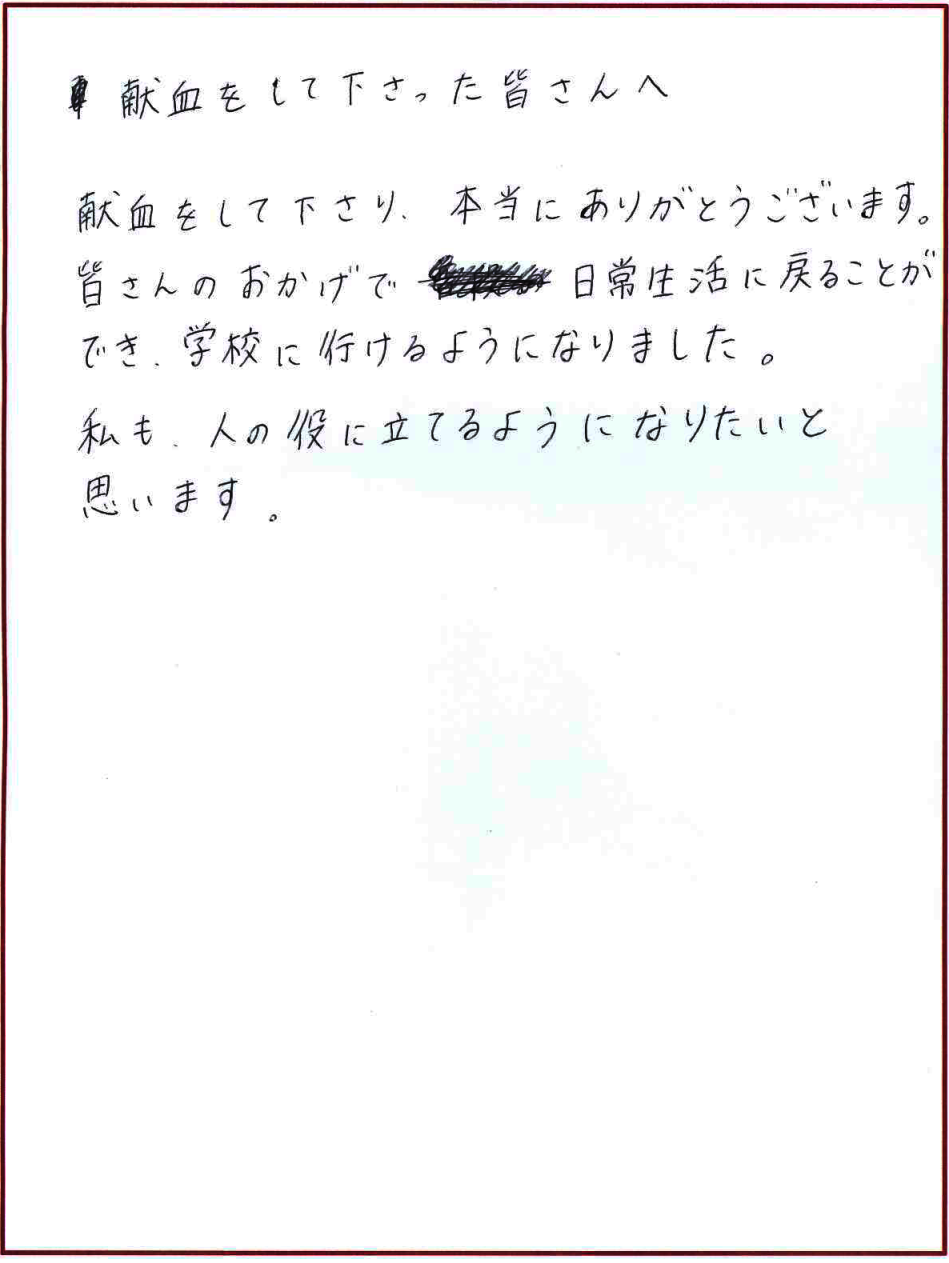 献血をして下さった皆さんへ
献血をして下さり、本当にありがとうございます。
皆さんのおかげで日常生活に戻ることが
でき、学校に行けるようになりました。
私も、人の役に立てるようになりたいと
思います。